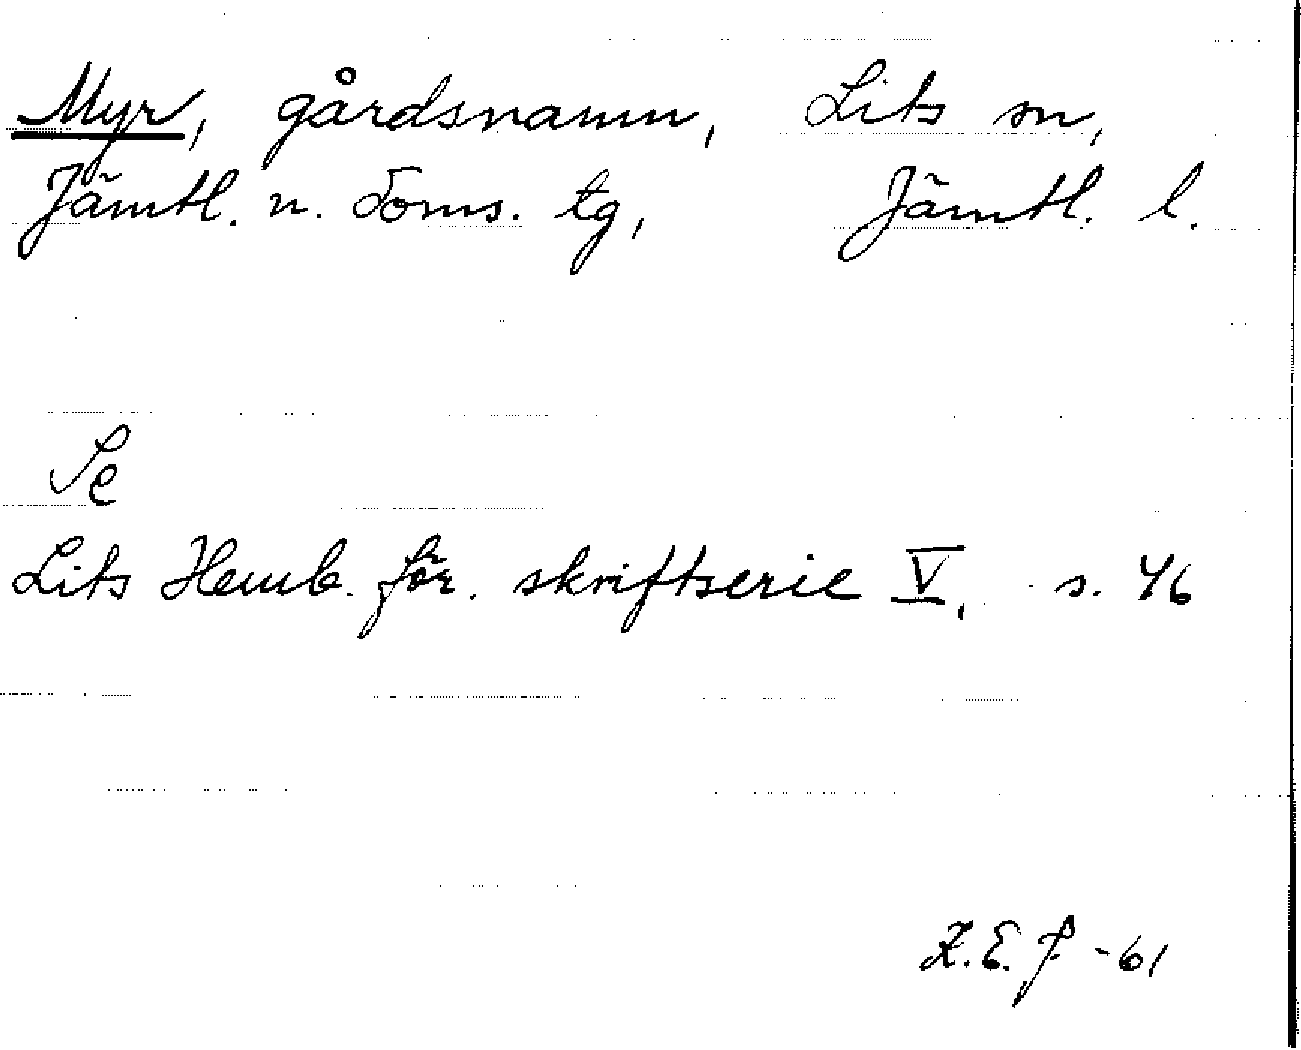 Myr, gårdsnamn, Lits sn,
Jämtl. n. doms. tg, Jämtl. l.
Se
Lits Hemb. för. skriftserie V, s. 46